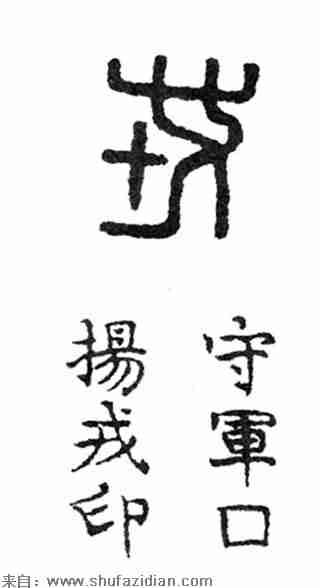 戎
守軍口
揚戎印
来自：www.shufazidian.com